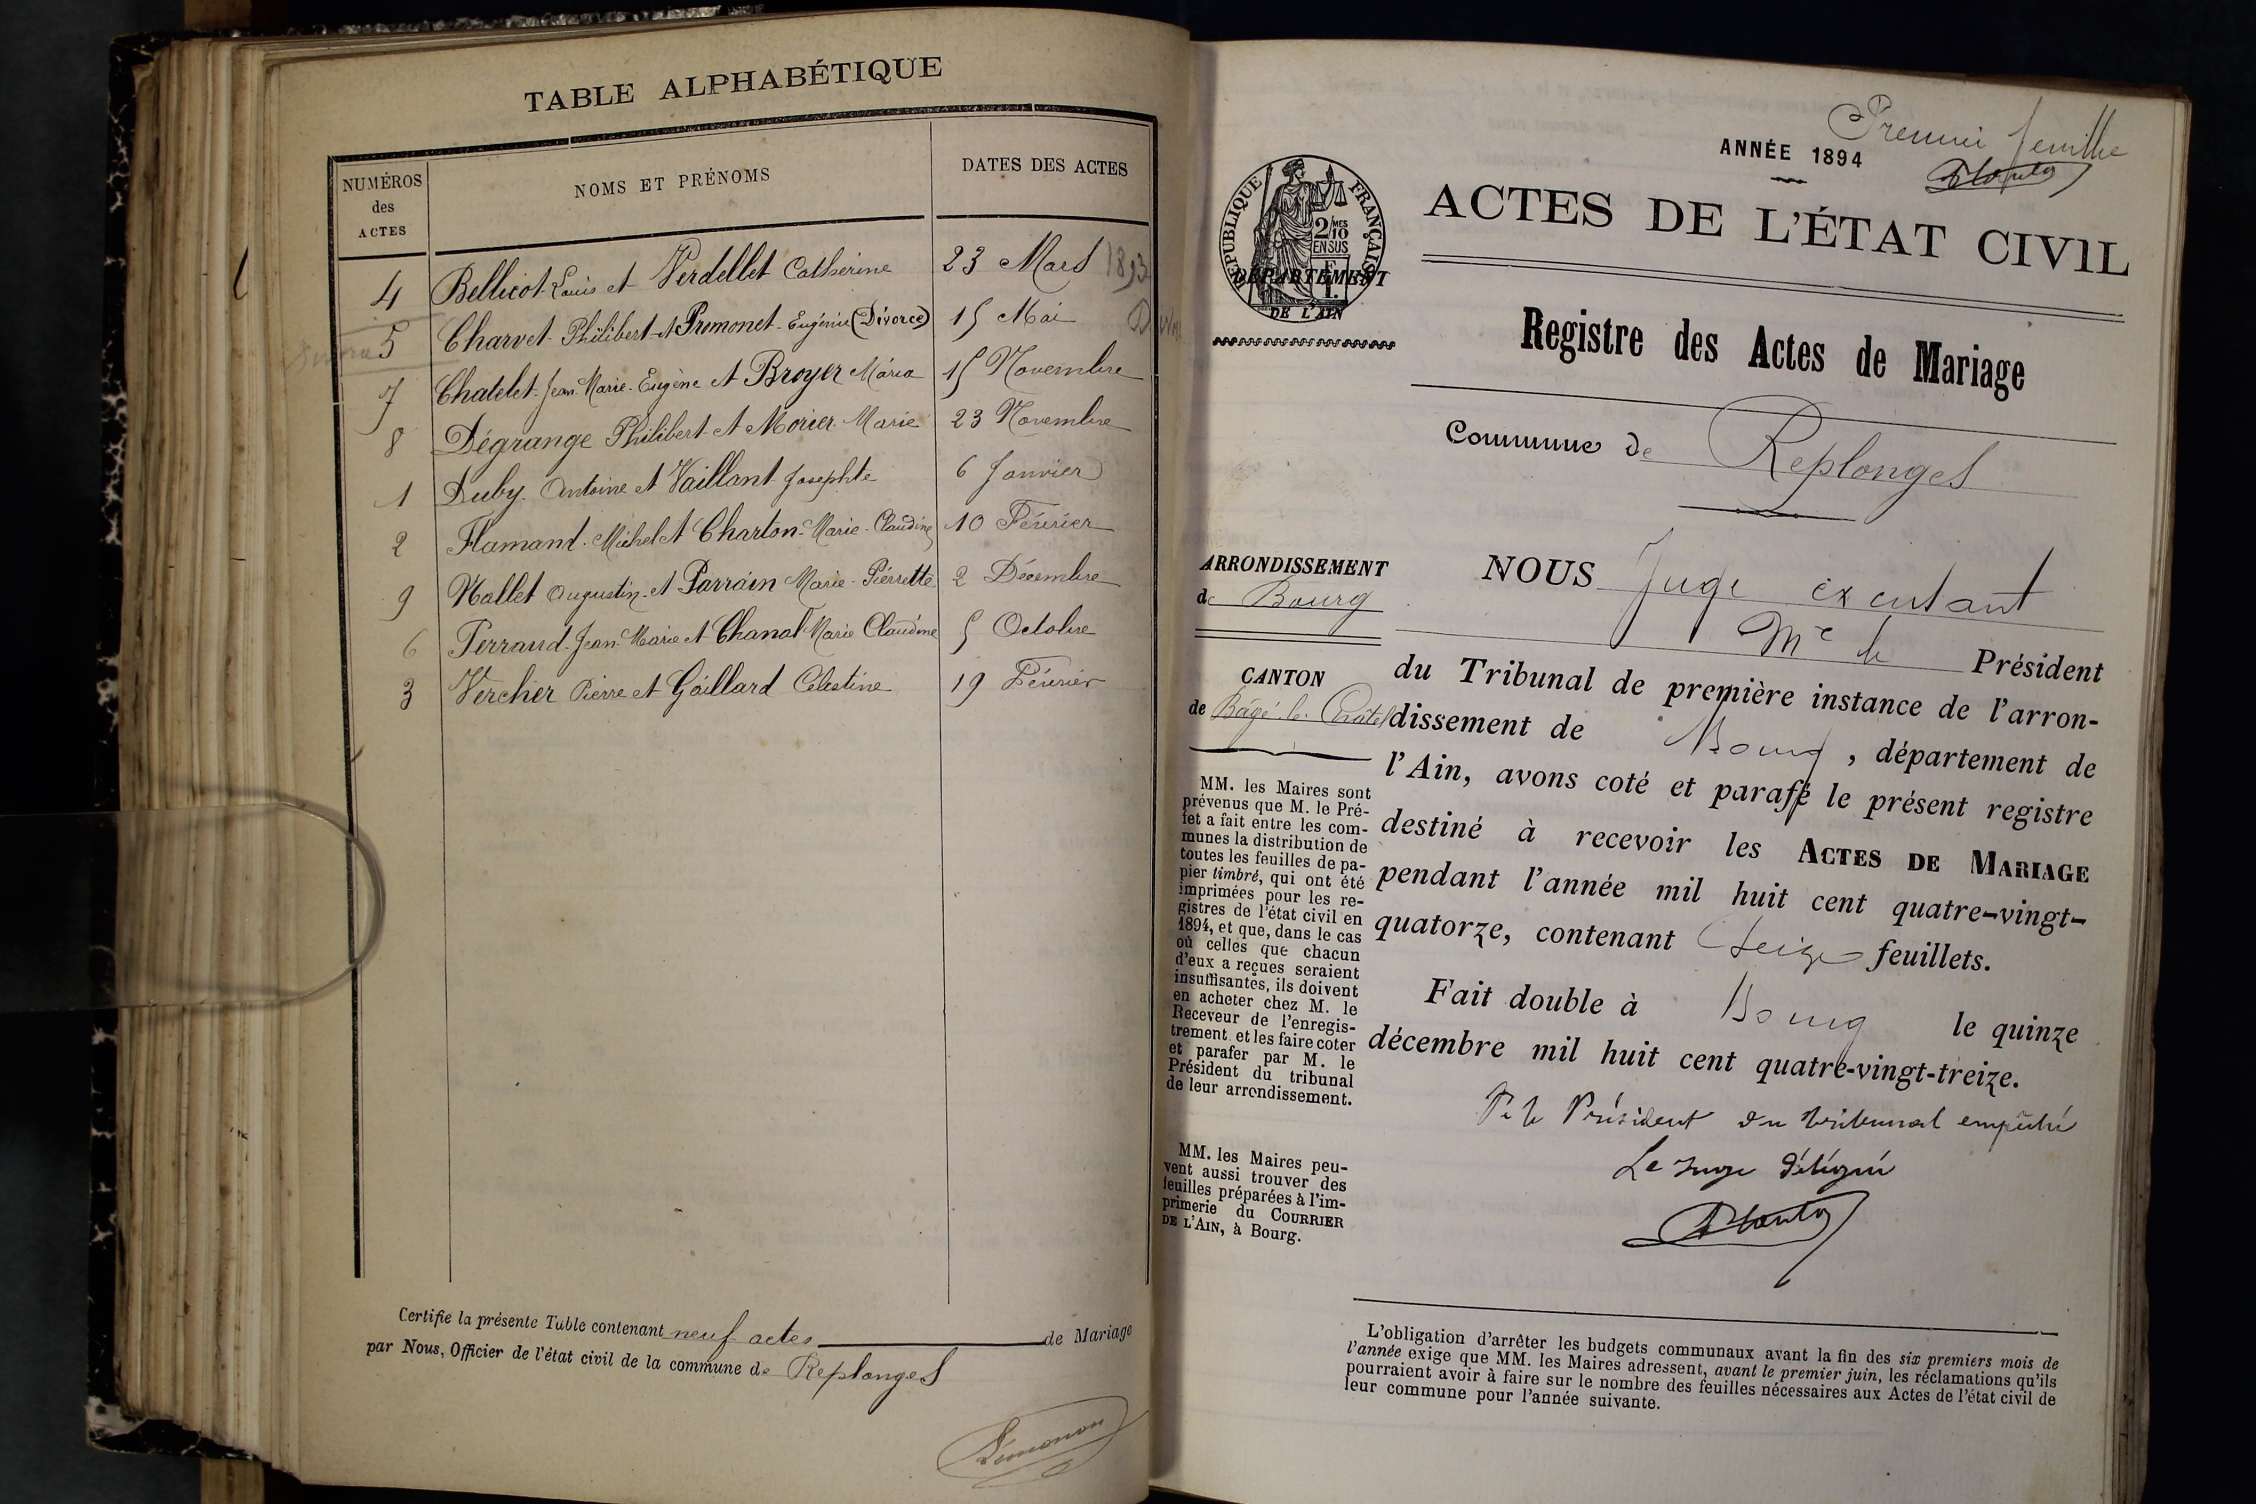 TABLE ALPHABÉTIQUE
NUMÉROS
des
ACTES
NOMS ET PRÉNOMS
DATES DES ACTES
4 Bellicot Louis et Verdellet Catherine 23 Mars 1893
5 Charvet Philibert et Promonet Eugénie (Divorce) 15 Mai
7 Chatelet Jean Marie Eugène et Broyer Maria 15 Novembre
8 Dégrange Philibert et Morier Marie 23 Novembre
1 Duby Antoine et Vaillant Josephte 6 Janvier
2 Flamand Michel et Charton Marie Claudine 10 Février
9 Nallet Augustin et Parrain Marie Pierrette 2 Décembre
6 Perraud Jean Marie et Chanal Marie Claudine 5 Octobre
3 Vercher Pierre et Gaillard Célestine 19 Février
Certifie la présente Table contenant neuf actes de Mariage
par Nous, Officier de l'état civil de la commune de Replonges
Premier feuillet
ANNÉE 1894
RÉPUBLIQUE FRANÇAISE
2/10 MES
EN SUS
DÉPARTEMENT
DE L'AIN
ACTES DE L'ÉTAT CIVIL
Registre des Actes de Mariage
Commune de Replonges
ARRONDISSEMENT
de Bourg
CANTON
de Bâgé-le-Châtel
MM. les Maires sont
prévenus que M. le Pré-
fet a fait entre les com-
munes la distribution de
toutes les feuilles de pa-
pier timbré, qui ont été
imprimées pour les re-
gistres de l'état civil en
1894, et que, dans le cas
où celles que chacun
d'eux a reçues seraient
insuffisantes, ils doivent
en acheter chez M. le
Receveur de l'enregis-
trement et les faire coter
et parafer par M. le
Président du tribunal
de leur arrondissement.
MM. les Maires peu-
vent aussi trouver des
feuilles préparées à l'im-
primerie du COURRIER
DE L'AIN, à Bourg.
NOUS Juge exculant
Mr le Président
du Tribunal de première instance de l'arron-
dissement de Bourg, département de
l'Ain, avons coté et parafé le présent registre
destiné à recevoir les ACTES DE MARIAGE
pendant l'année mil huit cent quatre-vingt-
quatorze, contenant Seize feuillets.
Fait double à Bourg le quinze
décembre mil huit cent quatre-vingt-treize.
Pr le Président du tribunal empêché
Le Juge délégué
L'obligation d'arrêter les budgets communaux avant la fin des six premiers mois de
l'année exige que MM. les Maires adressent, avant le premier juin, les réclamations qu'ils
pourraient avoir à faire sur le nombre des feuilles nécessaires aux Actes de l'état civil de
leur commune pour l'année suivante.